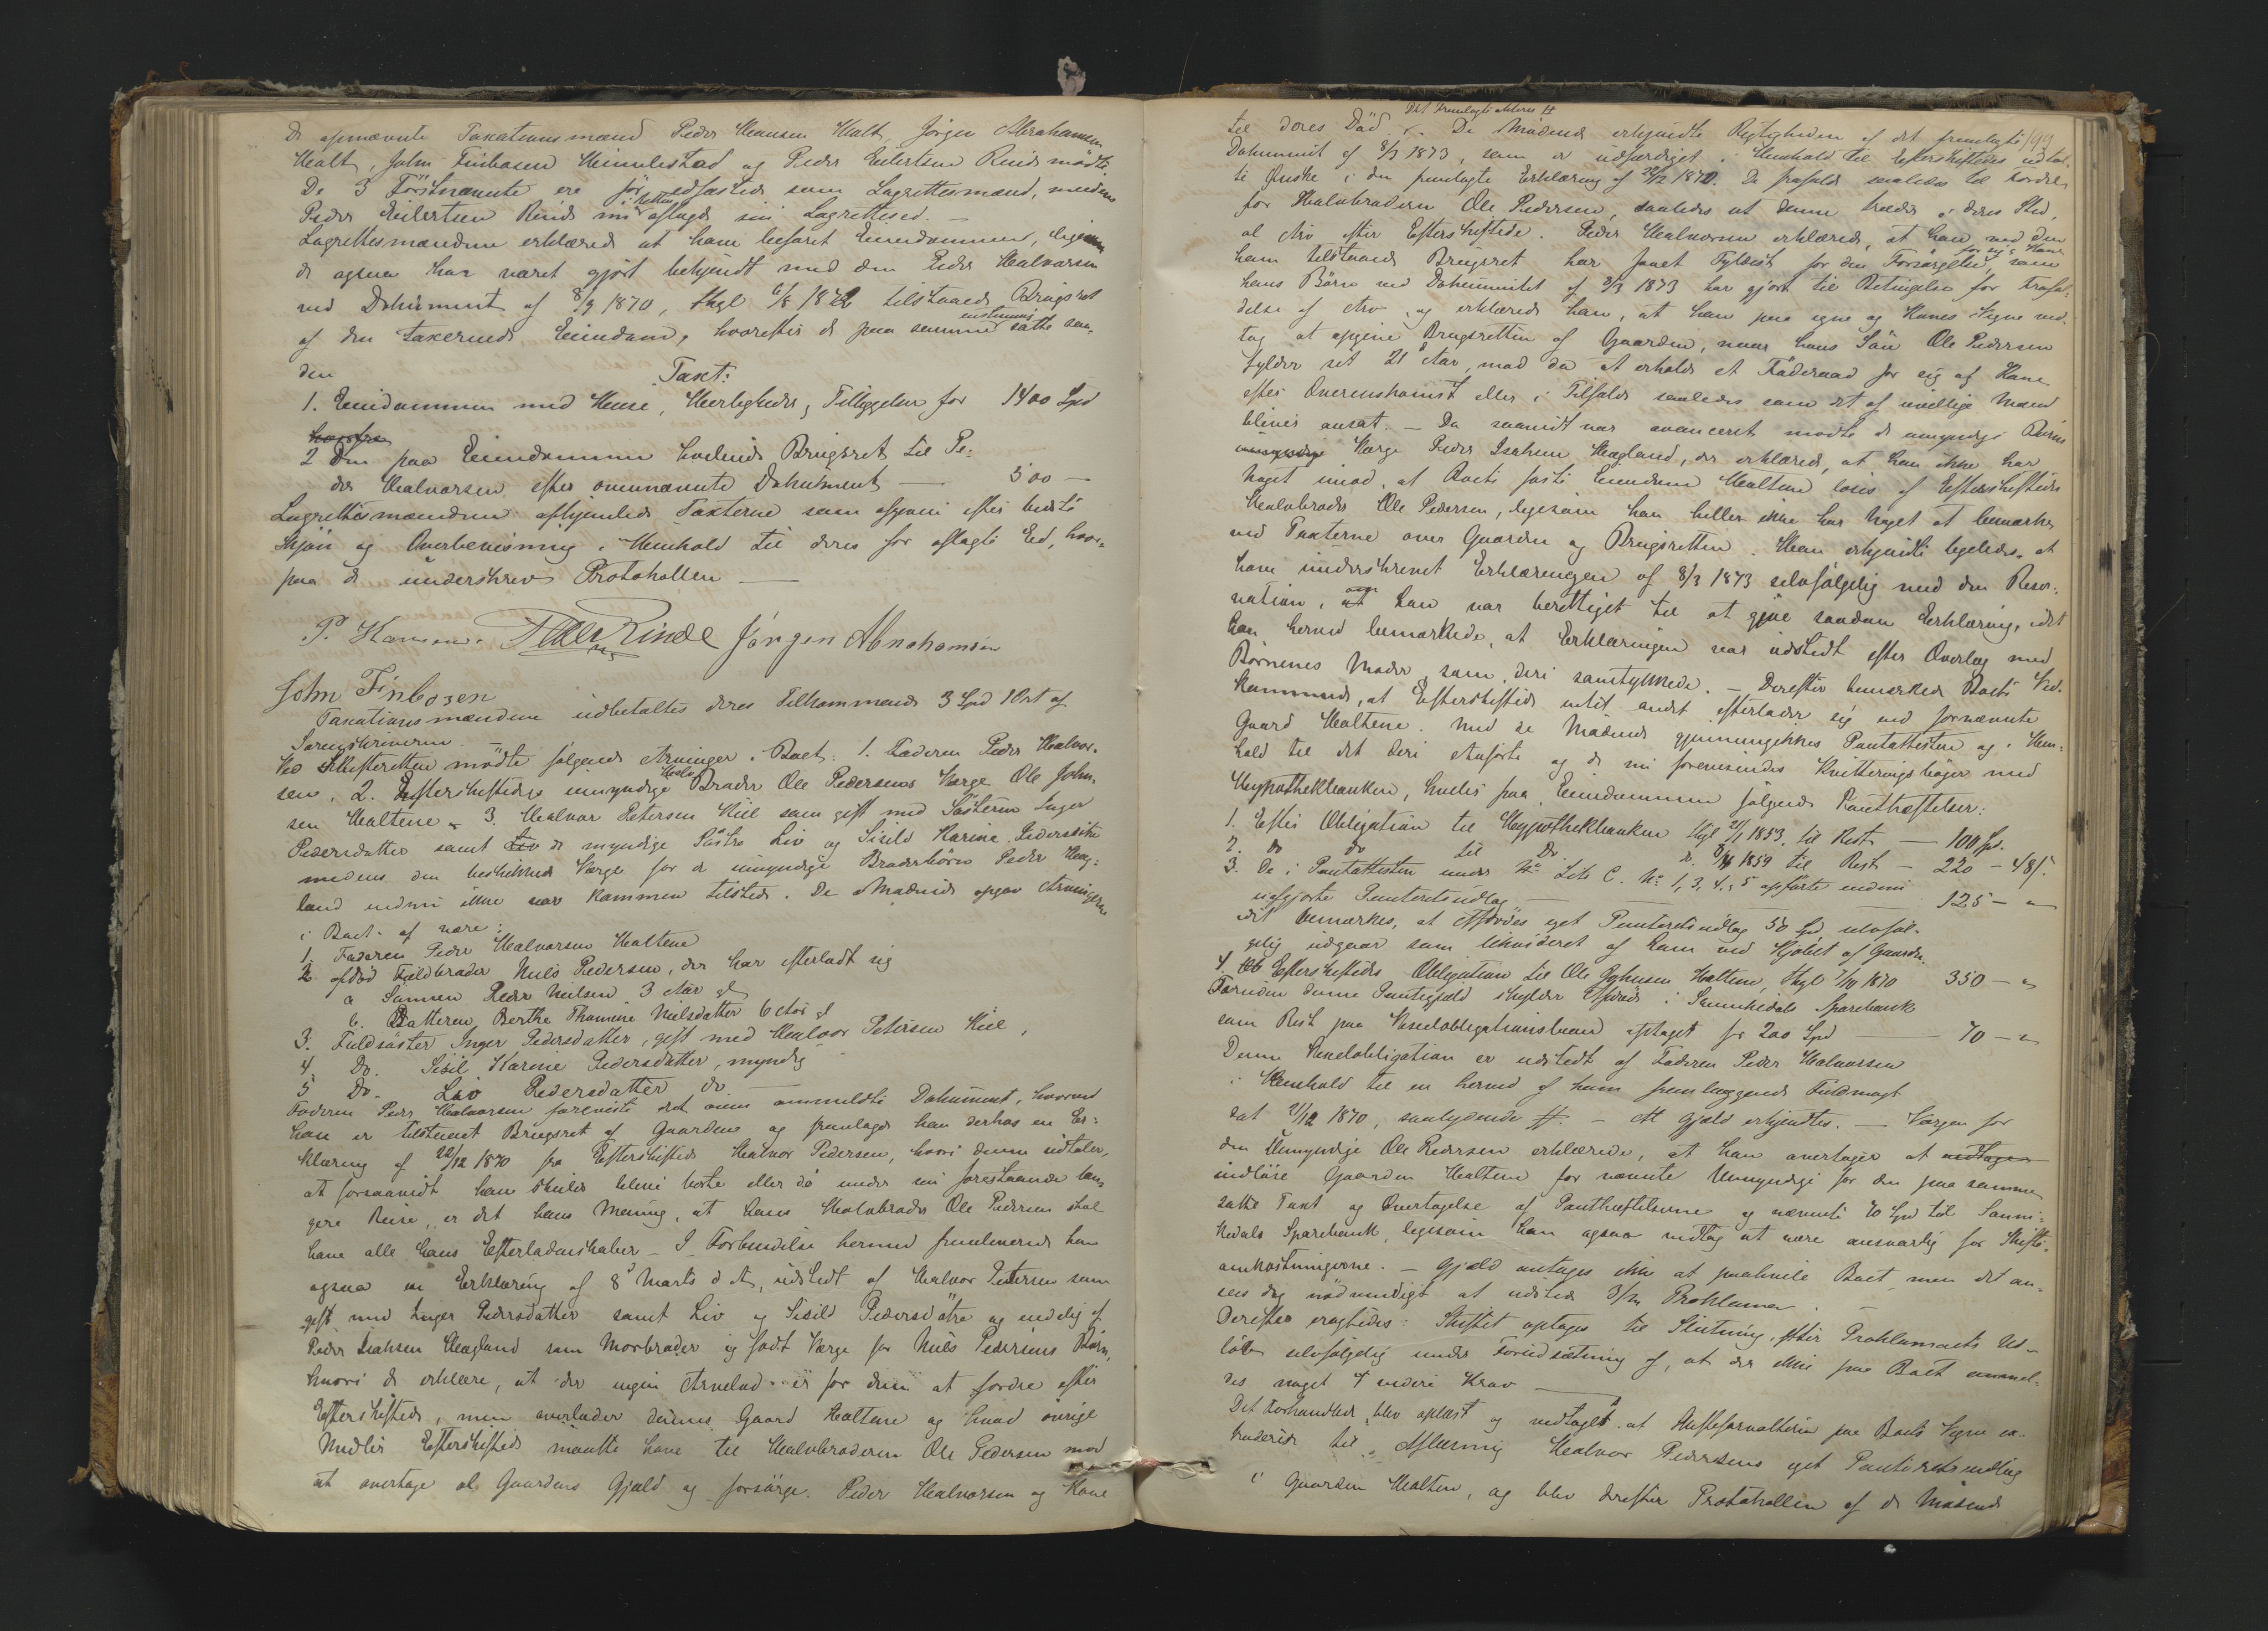 De opnævnte Taxationsmænd Peder Hansen Halt, Jörgen Abrahamsen
Halt, John Finbosen Himlestad og Peder Eilertsen Rinde mödte.
De 3 Förstnævnte ere för edfæstede som Lagrettesmænd, medens
Peder Eilertsen Rinde nu i Retten aflagde sin Lagrettesed. —
Lagrettesmændene erklærede at have befaret Eiendommen, ligesom
de ogsaa har været gjört bekjendt med den Peder Halvorsen
ved Dokument af 8/9 1870, thgl 6/8 1872 tilstaaede Brugsret
af den taxerende Eiendom, hvorefter de paa samme eenstemmig satte saa-
den
Taxt:
1. Eiendommen med Huse, Herligheder, Tilliggelser for 1400 Spd
hvorfra
2 Den paa Eiendommen hvilende Brugsret til Pe-
der Halvorsen efter ovennævnte Dokument — 500 —
Lagrettesmændene afhjemlede Taxterne som afgivne efter bedste
Skjön og Overbevisning i Henhold til deres för aflagte Ed, hvor-
paa de underskrev Protokollen —
P. Hansen. Peder Rinde Jörgen Abrahamsen
John Finbosen
Taxationsmændene udbetaltes deres Tilkommende 3 Spd 1 Ort af
Sorenskriveren. —
Ved Skifteretten mödte fölgende Arvinger i Boet: 1. Faderen Peder Halvor-
sen, 2. Efterskiftedes umyndige Halv Broder Ole Pedersens Værge Ole John-
sen Haltene 3. Halvor Petersen Kiil som gift med Sösteren Inger
Pedersdatter samt Liv de myndige Söstre Liv og Sisild Karine Pedersdötre
medens den beskikkede Værge for de umyndige Broderbörn Peder Hæg-
land endnu ikke var kommen tilstede. De Mödende opgav Arvingerne
i Boet at være:
1. Faderen Peder Halvorsen Haltene
2. afdöd Fuldbroder Niels Pedersen, der har efterladt sig
a Sönnen Peder Nielsen 3 Aar gl
b. Datteren Berthe Thomine Nielsdatter 6 Aar gl
3. Fuldsöster Inger Pedersdatter, gift med Halvor Petersen Kiil,
4. Do. Sisil Karine Pedersdatter, myndig
5 Do. Liv Pedersdatter do —
Faderen Peder Halvorsen foreviste det oven anmeldte Dokument, hvorved
han er tilstaaet Brugsret af Gaarden og fremlagde han derhos en Er-
klæring af 22/12 1870 fra Efterskiftede Halvor Pedersen, hvori denne udtaler,
at forsaavidt han skulde blive borte eller dö under sin forestaaende læn-
gere Reise, er det hans Mening, at hans Halvbroder Ole Pedersen skal
have alle hans Efterladenskaber — I Forbindelse hermed fremleverede han
ogsaa en Erklæring af 8de Marts d. A., udstedt af Halvor Petersen som
gift med Inger Pedersdatter samt Liv og Sisild Pedersdötre og endelig af
Peder Isaksen Hægland som Morbroder og födt Værge for Niels Pedersens Börn,
hvori de erklære, at der ingen Arvelod er for dem at fordre efter
Efterskiftede, men overlader dennes Gaard Haltene og hvad övrige
Midler Efterskiftede maatte have til Halvbroderen Ole Pedersen mod
at overtage al Gaardens Gjæld og forsörge Peder Halvorsen og Kone
Det fremlagte Akteres #
199
til deres Död. De Mödende erkjendte Rigtigheden af det fremlagte
Dokument af 8/3 1873, som er udfærdiget i Henhold til Efterskiftedes udtal-
te Önske i den fremlagte Erklæring af 22/12 1870. De frafaldt saaledes til Fordel
for Halvbroderen Ole Pedersen, saaledes at denne træder i deres Sted,
al Arv efter Efterskiftede. Peder Halvorsen erklærede, at han ved den
ham tilstaaede Brugsret har faaet Fyldest for den Forsörgelse for sig & Kone som
hans Börn ved Dokumentet af 8/3 1873 har gjort til Betingelse for Frafal-
delse af Arv og erklærede han, at han paa egne og Kones Vegne ved-
tog at opgive Brugsretten af Gaarden, naar hans Sön Ole Pedersen
fylder sit 21 Aar, mod da at erholde et Föderaad for sig og Kone
efter Overenskomst eller i Tilfælde saaledes som det af uvillige Mænd
bliver ansat. — Da saavidt var avanceret mödte de umyndige Börns
umyndige Værge Peder Isaksen Hægland, der erklærede, at han ikke har
Noget imod, at Boets faste Eiendom Haltene loves af Efterskiftedes
Halvbroder Ole Pedersen, ligesom han heller ikke har Noget at bemærke
ved Taxterne over Gaarden og Brugsretten. Han erkjendte ligeledes at
have underskrevet Erklæringen af 8/3 1873 selvfölgelig med den Reser-
vation, at om han var berettiget til at give saadan Erklæring, idet
han herved bemærkede, at Erklæringen var udstedt efter Overlæg med
Börnenes Moder, som deri samtykkede. — Derefter bemærkedes Boets Ved-
kommende, at Efterskiftede intet andet efterlader sig end fornævnte
Gaard Haltene. Med de Mödende gjennemgikkes Pantattesten og i Hen-
hold til det deri Anförte og de nu forevisendes Kvitteringsböger med
Hypothekbanken, hviler paa Eiendommen fölgende Panthæftelser:
1. Efter Obligation til Hypothekbanken thgl 21/1 1853, til Rest — 100 Spd.
2. do do til Do. do. 8/4 1859 til Rest — 220 — 48 s.
3. De i Pantattesten under No Lit C. No 1, 3, 4 & 5 opförte endnu
uafgjorte Panteretsudlæg — — — 125 — "
Det bemærkes, at Afdödes eget Panteretsudlæg 50 Spd selvföl-
gelig udgaar som likvideret af ham ved Kjöbet af Gaarden.
4. Ob Efterskiftedes Obligation til Ole Johnsen Haltene, thgl 7/10 1870 350 — "
Foruden denne Pantegjæld skylder Afdöde i Sannikedals Sparebank
som Rest paa Vexelobligationslaan optaget for 200 Spd — 70 — "
Denne Vexelobligation er udstedt af Faderen Peder Halvorsen
i Henhold til en herved af ham fremlæggende Fuldmagt
dat 21/12 1870, saalydende #. — Al Gjæld erkjendtes. — Værgen for
den Umyndige Ole Pedersen erklærede, at han overtager at vedtage
indlöse Gaarden Haltene for nævnte Umyndige for den paa samme
satte Taxt og Overtagelse af Panthæftelserne og nævnte 70 Spd til Sanni-
kedals Sparebank, ligesom han ogsaa vedtog at være ansvarlig for Skifte-
omkostningerne. — Gjæld antages ikke at paahvile Boet, men det an-
sees dog nödvendigt at udstede Proklama. —
Derefter eragtedes: Skiftet optages til Slutning efter Proklamaets Ud-
löb selvfölgelig under Forudsætning af, at der ikke paa Boet anmel-
des noget videre Krav —
Det Forhandlede blev oplæst og vedtaget at Skifteforvalteren paa Boets Vegne
til Aflæsning Halvor Pedersens eget Panteretsudlæg
i Gaarden Halten, og blev derefter Protokollen af de Mödende